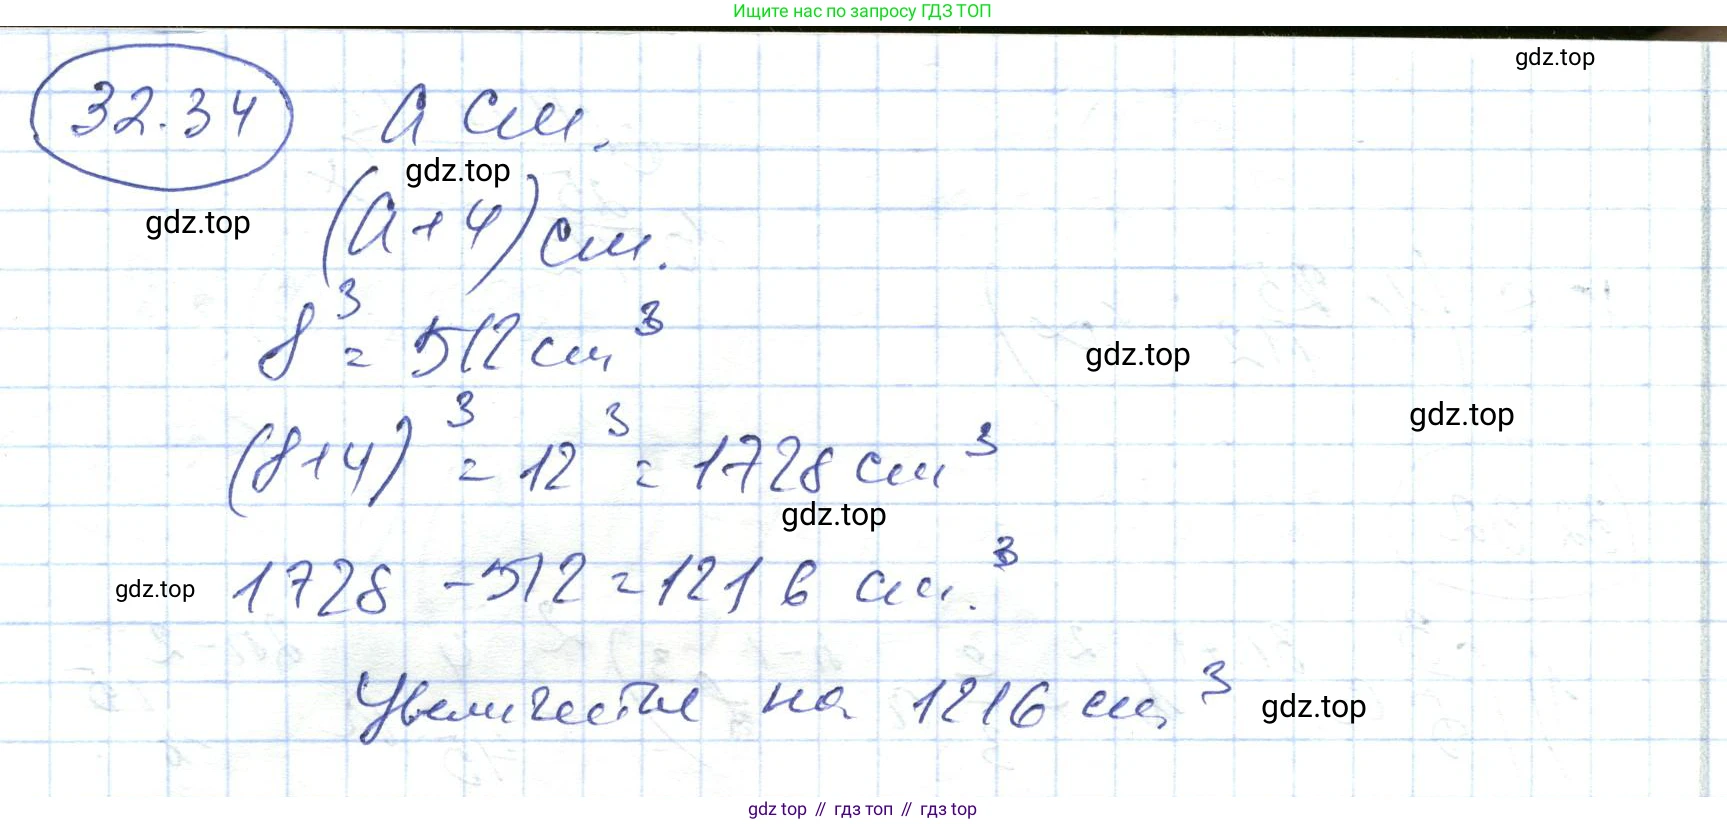 Ищите нас по запросу ГДЗ ТОП
gdz.top
32.34 а см.
gdz.top
gdz.top
(а+4) см.
8³ = 512 см³
gdz.top
gdz.top
(8+4)³ = 12³ = 1728 см³
gdz.top
gdz.top
1728 - 512 = 1216 см.³
Увеличится на 1216 см³
gdz.top
gdz top // гдз топ // гдз top